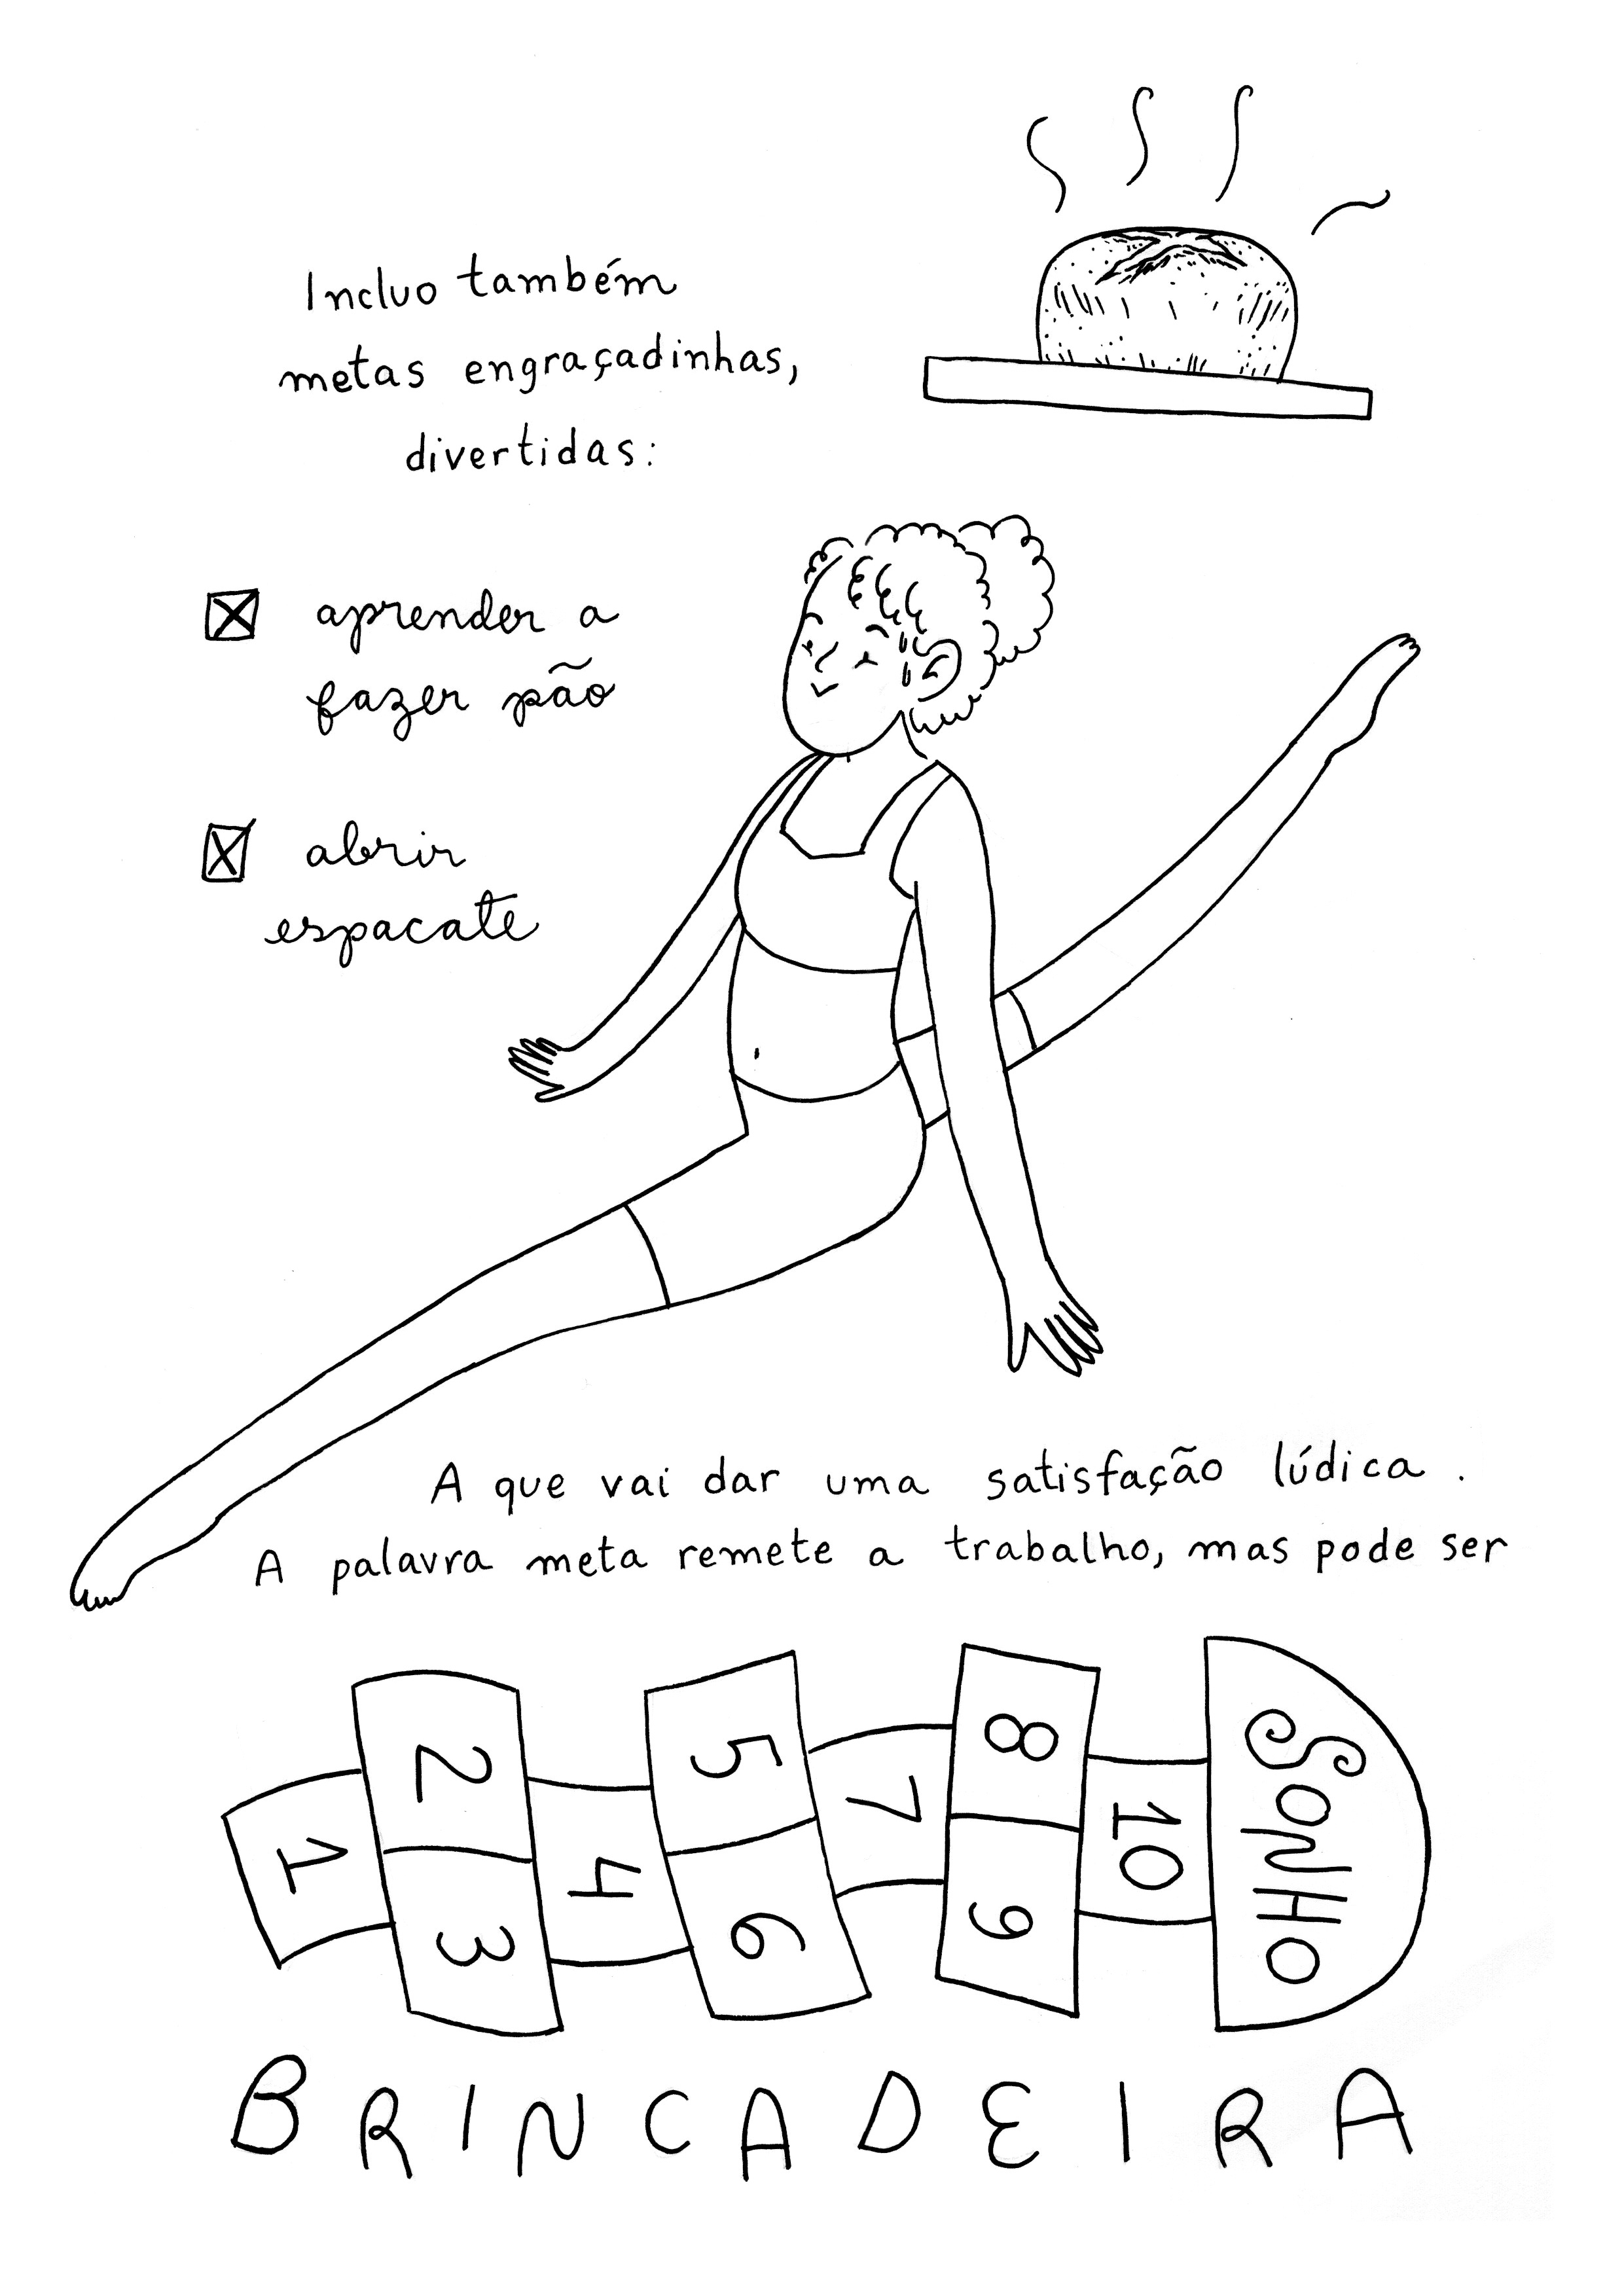 Incluo também
metas engraçadinhas,
divertidas:
aprender a
fazer pão
abrir
espacate
A que vai dar uma satisfação lúdica.
A palavra meta remete a trabalho, mas pode ser
1
2
3
4
5
6
7
8
9
10
SONHO
BRINCADEIRA